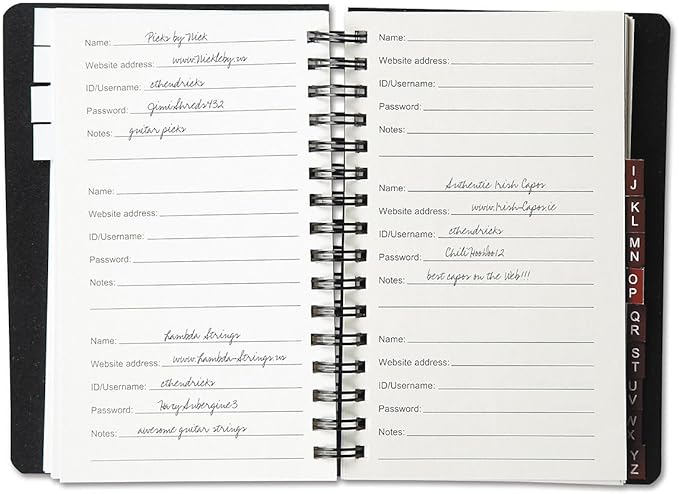 Name: Picks by Nick
Website address: www.Nickleby.us
ID/Username: ethendricks
Password: JimiShreds432
Notes: guitar picks
Name:
Website address:
ID/Username:
Password:
Notes:
Name: Lambda Strings
Website address: www.Lambda-Strings.us
ID/Username: ethendricks
Password: HazyAubergine3
Notes: awesome guitar strings
Name:
Website address:
ID/Username:
Password:
Notes:
Name: Authentic Irish Capos
Website address: www.Irish-Capos.ie
ID/Username: ethendricks
Password: ChiliHooDoo12
Notes: best capos on the Web!!!
Name:
Website address:
ID/Username:
Password:
Notes:
I
J
K
L
M
N
O
P
Q
R
S
T
U
V
W
X
Y
Z